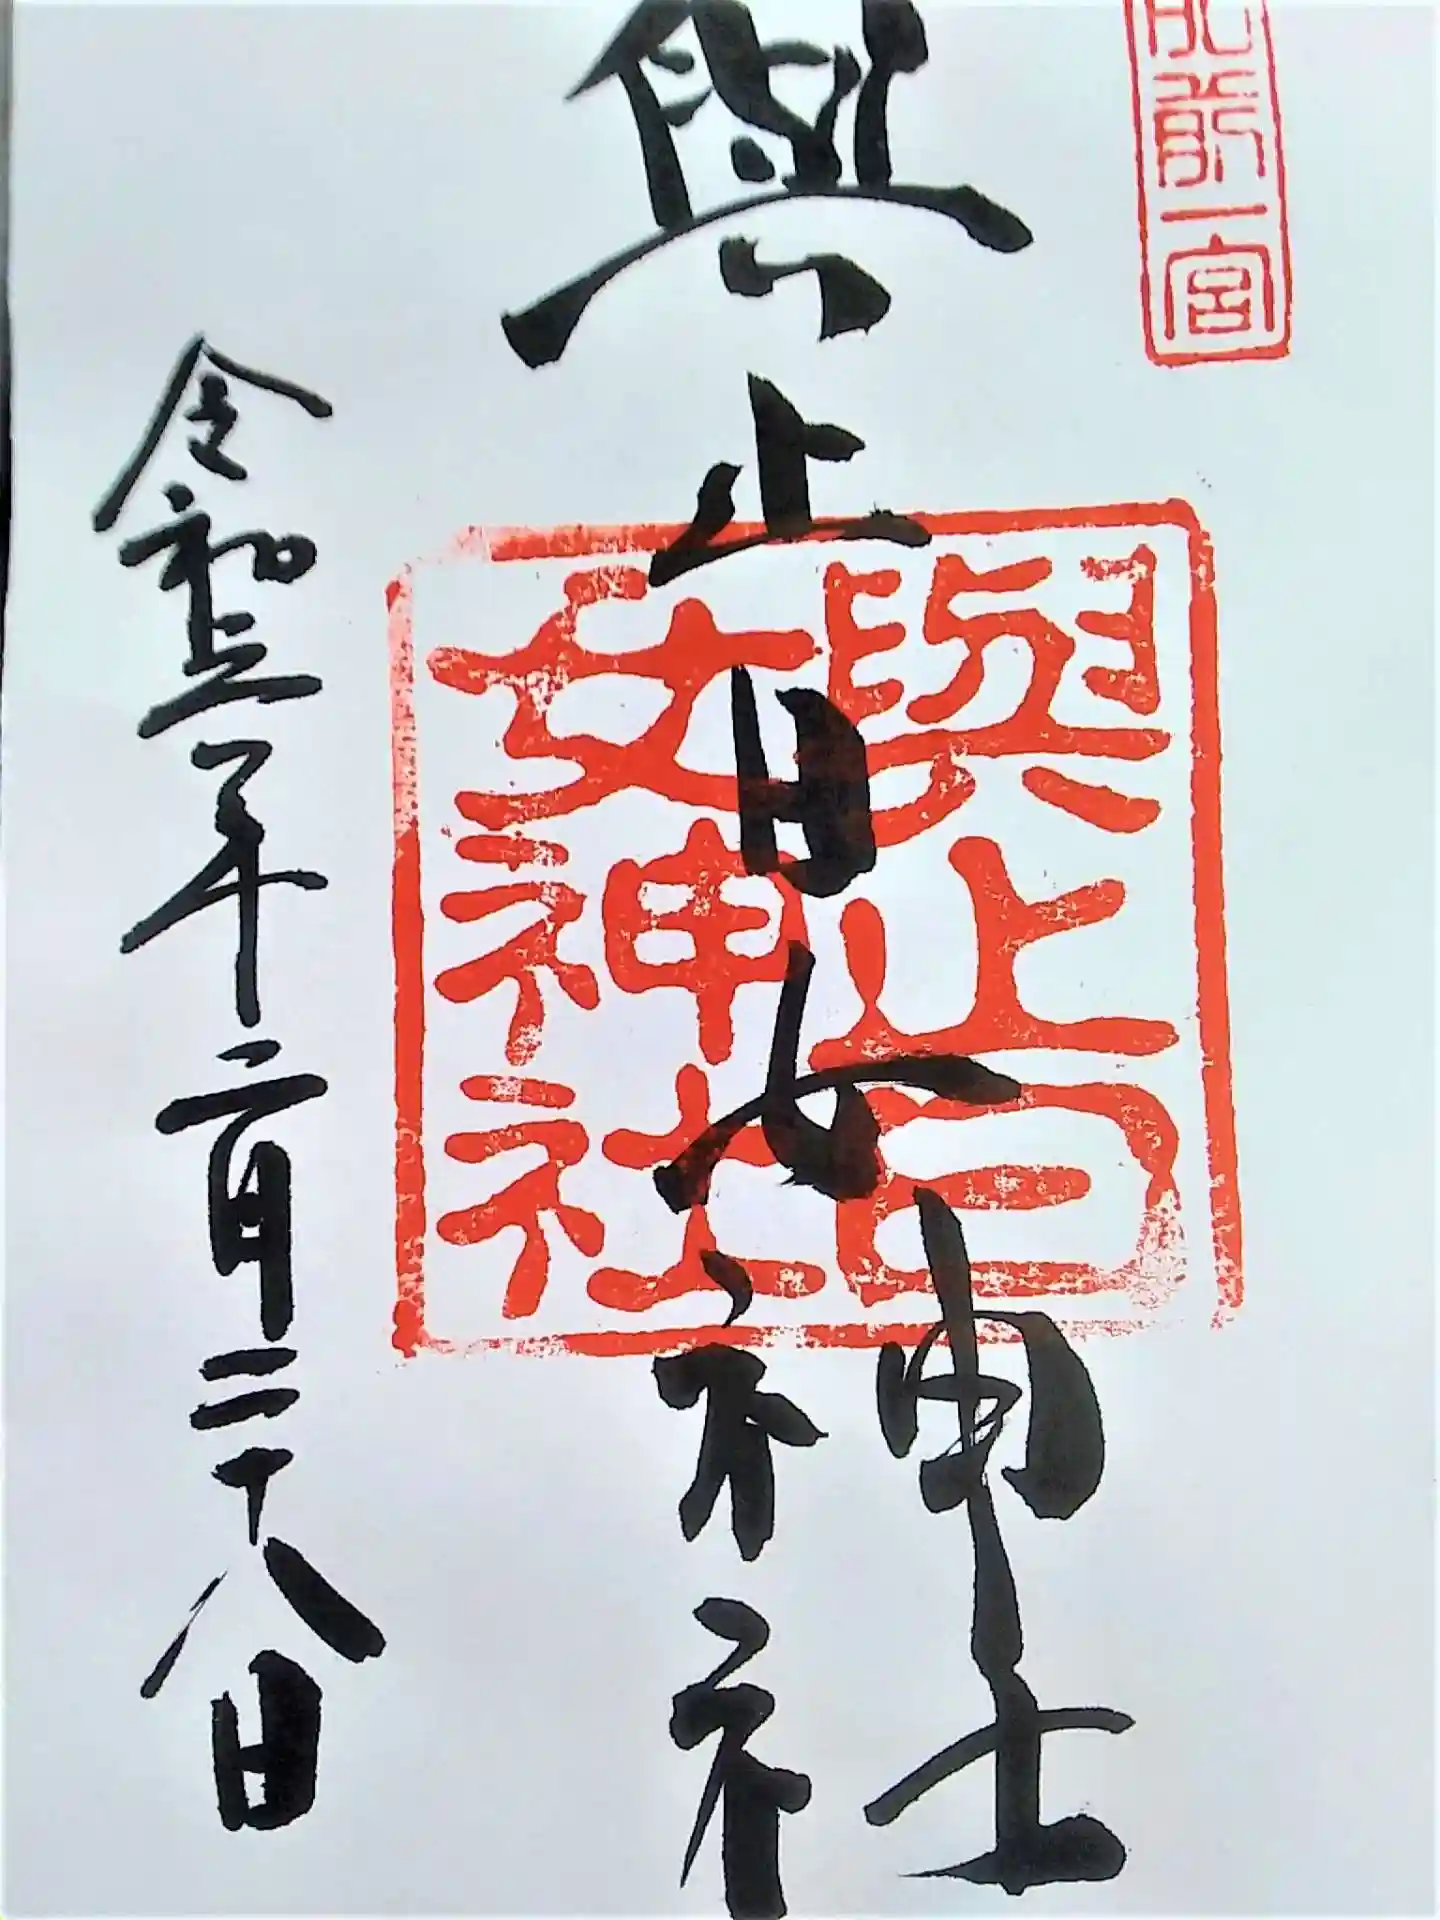 肥前一宮
與止日女神社
與止日
女神社
令和三年二月二十八日